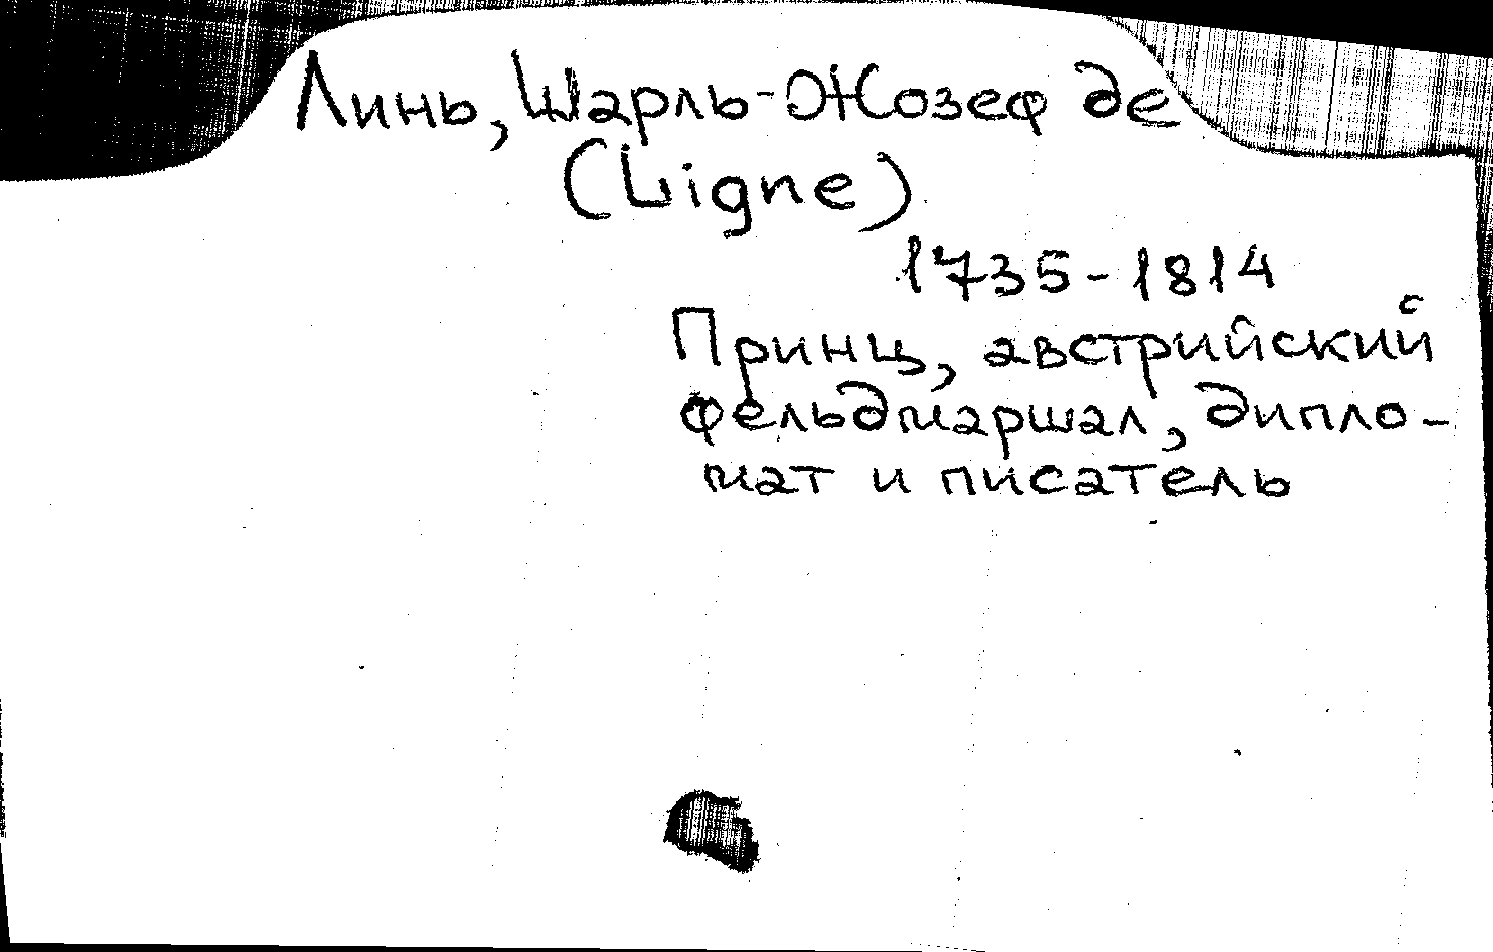 Линь, Шарль-Жозеф де
(Ligne)
1735-1814
Принц, австрийский
фельдмаршал, дипло-
мат и писатель